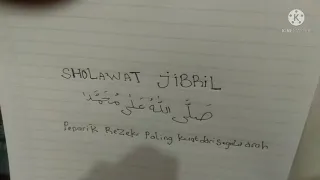 SHOLAWAT JIBRIL
صَلَّى اللهُ عَلَى مُحَمَّد
Penarik Rezeki Paling Kuat dari Segala arah